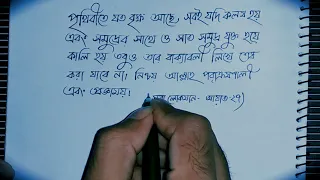 পৃথিবীতে যত বৃক্ষ আছে, সবই যদি কলম হয়
এবং সমুদ্রের সাথে ও সাত সমুদ্র যুক্ত হয়ে
কালি হয় তবুও তার বাক্যাবলী লিখে শেষ
করা যাবে না। নিশ্চয় আল্লাহ পরাক্রমশালী
এবং প্রজ্ঞাময়।
সূরা লোকমান- আয়াত ২৭)